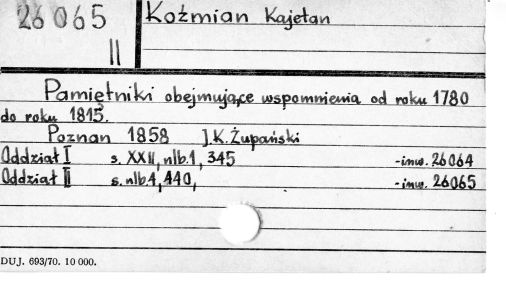 26065
II
Koźmian Kajetan
Pamiętniki obejmujące wspomnienia od roku 1780
do roku 1815.
Poznan 1858 J.K.Żupański
Oddział I s. XXII, nlb.1, 345 -inw. 26064
Oddział II s. nlb.4, 440, -inw. 26065
DUJ. 693/70. 10 000.